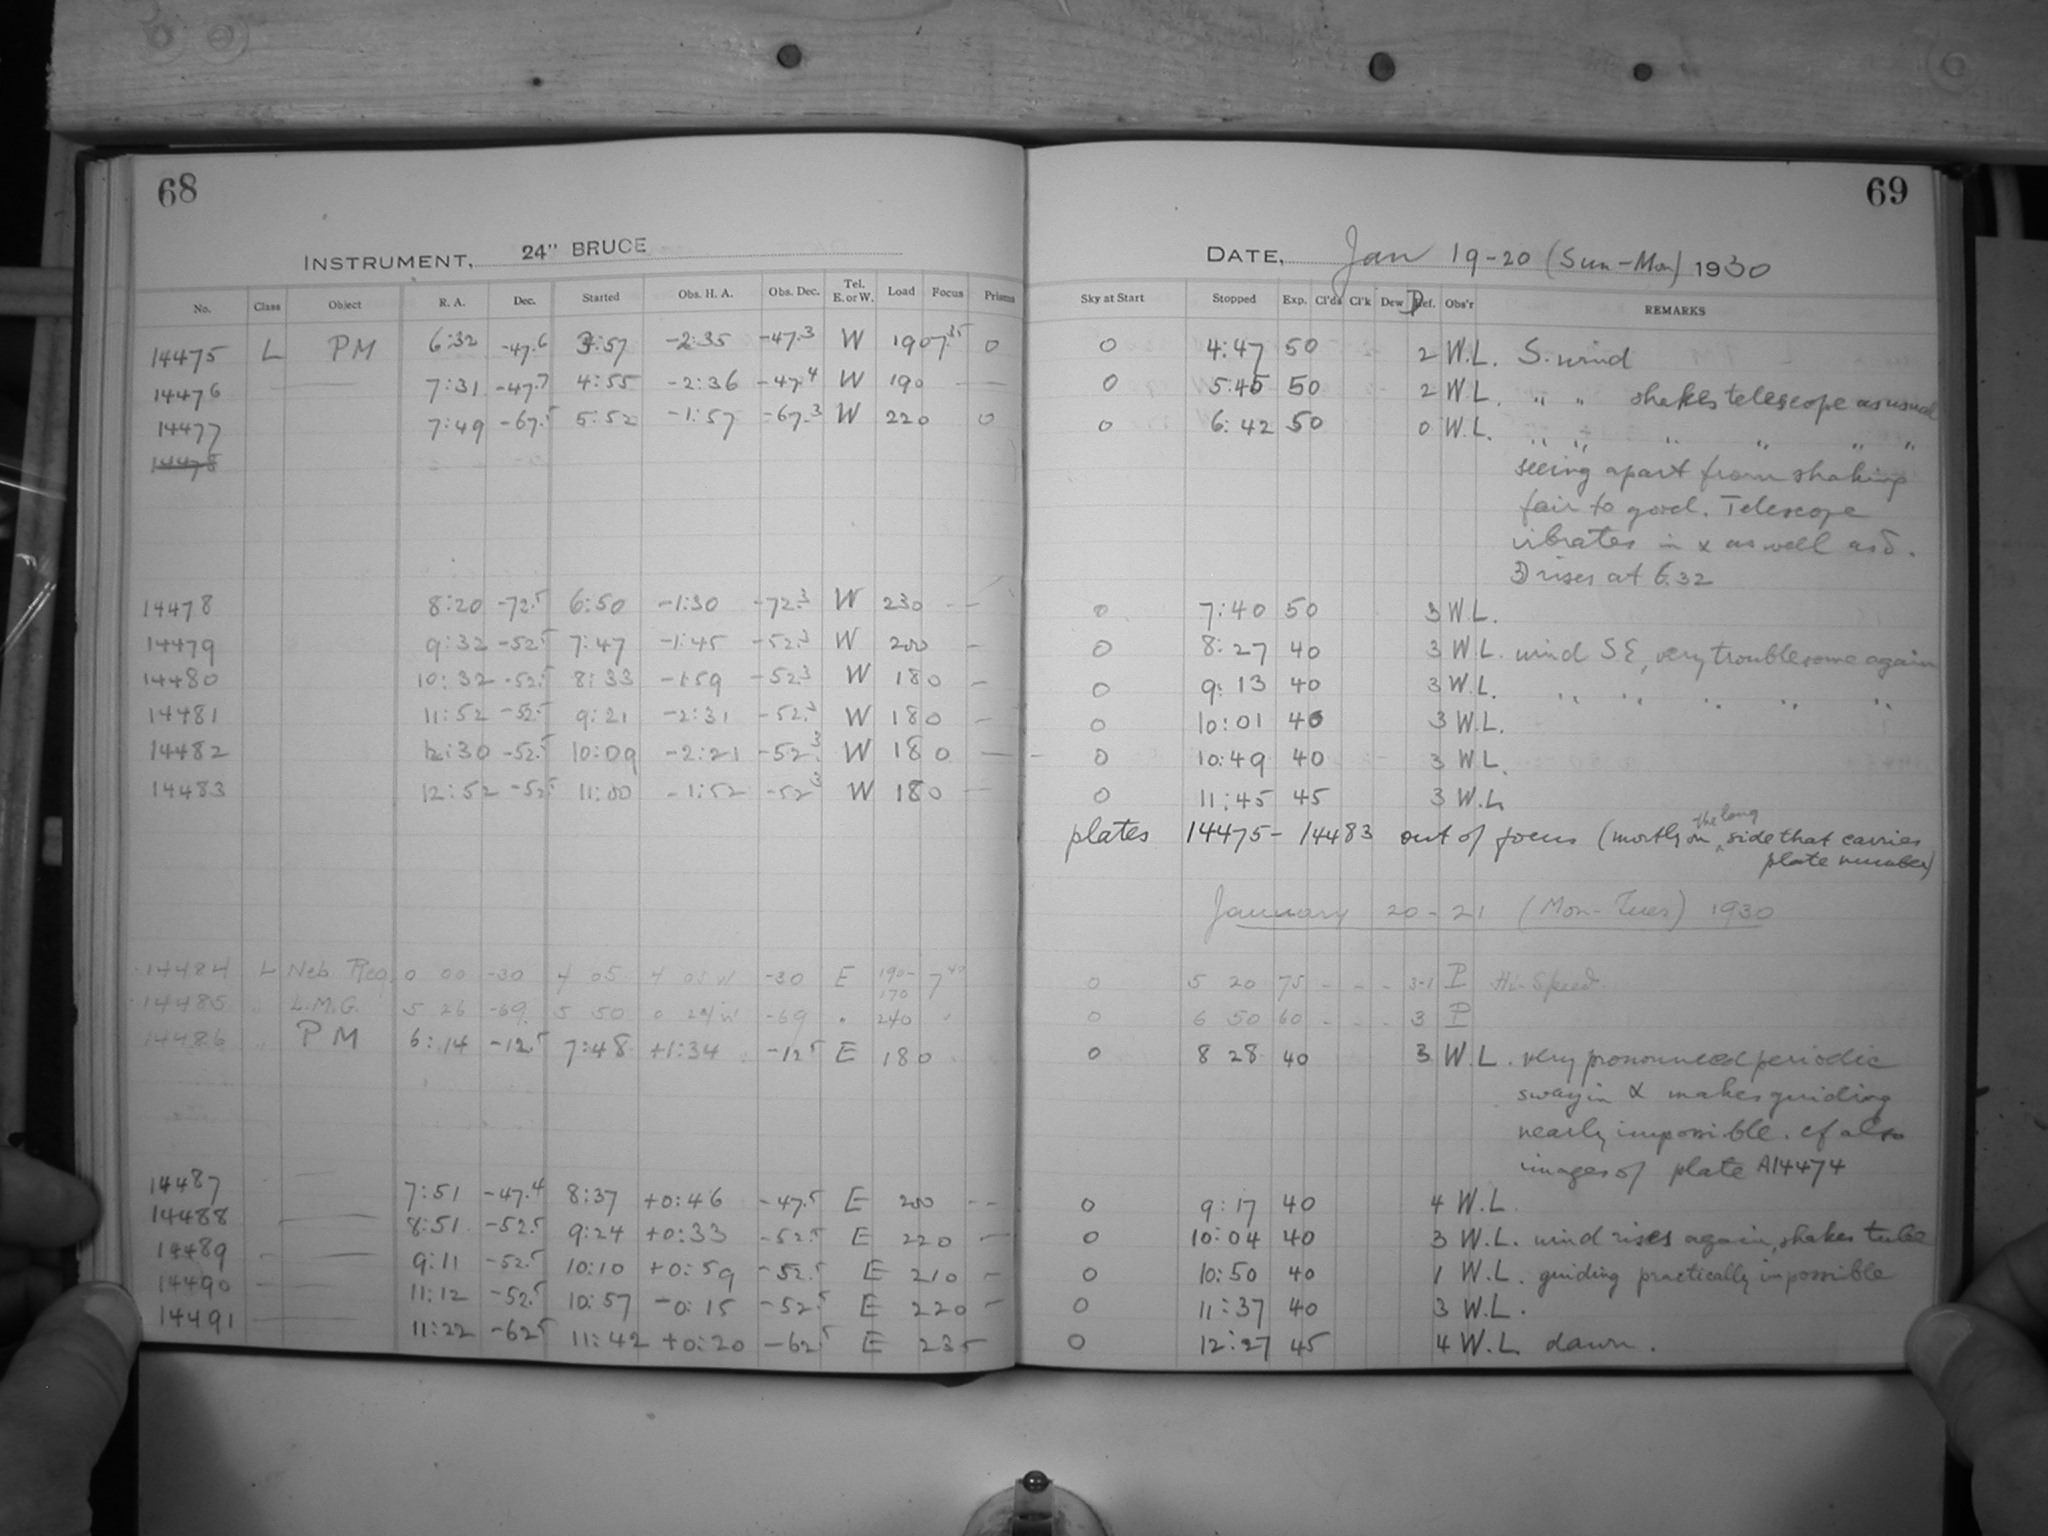 68
69
INSTRUMENT, 24" BRUCE
DATE, Jan 19-20 (Sun-Mon) 1930
No. Class Object R. A. Dec. Started Obs. H. A. Obs. Dec. Tel. E. or W. Load Focus Prisms Sky at Start Stopped Exp. Cl'ds Cl'k Dew Def. Obs'r REMARKS
14475 L PM 6:32 -47.6 3:57 -2:35 -47.3 W 190 7.35 0 0 4:47 50 2 W.L. S. wind
14476 7:31 -47.7 4:55 -2:36 -47.4 W 190 0 5:45 50 2 W.L. " " shakes telescope as usual
14477 7:49 -67.5 5:52 -1:57 -67.3 W 220 0 0 6:42 50 0 W.L. " " " " " "
14478
seeing apart from shaking
fair to good. Telescope
vibrates in α as well as δ.
rises at 6.32
14478 8:20 -72.5 6:50 -1:30 -72.3 W 230 - - 0 7:40 50 3 W.L.
14479 9:32 -52.5 7:47 -1:45 -52.3 W 200 - 0 8:27 40 3 W.L. wind SE, very troublesome again
14480 10:32 -52.5 8:33 -1:59 -52.3 W 180 - 0 9:13 40 3 W.L. " " " " "
14481 11:52 -52.5 9:21 -2:31 -52.3 W 180 - 0 10:01 40 3 W.L.
14482 12:30 -52.5 10:09 -2:21 -52.3 W 180 - 0 10:49 40 3 W.L.
14483 12:52 -52.5 11:00 -1:52 -52.3 W 180 - 0 11:45 45 3 W.L.
plates 14475-14483 out of focus (mostly on the long side that carries
plate number)
January 20-21 (Mon-Tues) 1930
14484 L Neb. Reg. 0 00 -30 4 05 4 05 W -30 E 190-170 7.40 0 5 20 75 - - - 3-1 P Hi-Speed
14485 " L.M.G. 5 26 -69 5 50 0 24 W -69 " 240 " 0 6 50 60 - - - 3 P
14486 " PM 6:14 -12.5 7:48 +1:34 -12.5 E 180 0 8 28 40 3 W.L. very pronounced periodic
sway in α makes guiding
nearly impossible. cf also
images of plate A14474
14487 7:51 -47.4 8:37 +0:46 -47.5 E 200 - - 0 9:17 40 4 W.L.
14488 8:51 -52.5 9:24 +0:33 -52.5 E 220 - 0 10:04 40 3 W.L. wind rises again, shakes tube
14489 9:11 -52.5 10:10 +0:59 -52.5 E 210 - 0 10:50 40 1 W.L. guiding practically impossible
14490 11:12 -52.5 10:57 -0:15 -52.5 E 220 - 0 11:37 40 3 W.L.
14491 11:22 -62.5 11:42 +0:20 -62.5 E 235 0 12:27 45 4 W.L dawn.